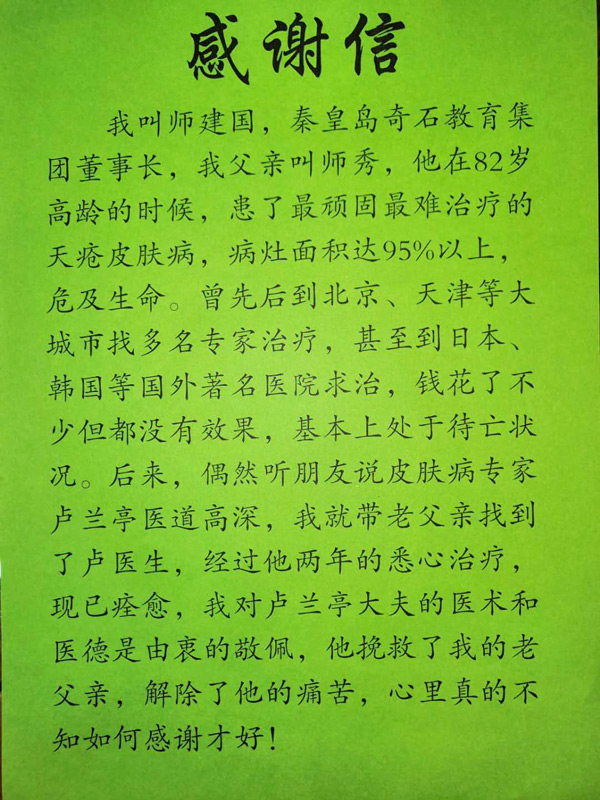 感谢信
我叫师建国，秦皇岛奇石教育集
团董事长，我父亲叫师秀，他在82岁
高龄的时候，患了最顽固最难治疗的
天疮皮肤病，病灶面积达95%以上，
危及生命。曾先后到北京、天津等大
城市找多名专家治疗，甚至到日本、
韩国等国外著名医院求治，钱花了不
少但都没有效果，基本上处于待亡状
况。后来，偶然听朋友说皮肤病专家
卢兰亭医道高深，我就带老父亲找到
了卢医生，经过他两年的悉心治疗，
现已痊愈，我对卢兰亭大夫的医术和
医德是由衷的敬佩，他挽救了我的老
父亲，解除了他的痛苦，心里真的不
知如何感谢才好！